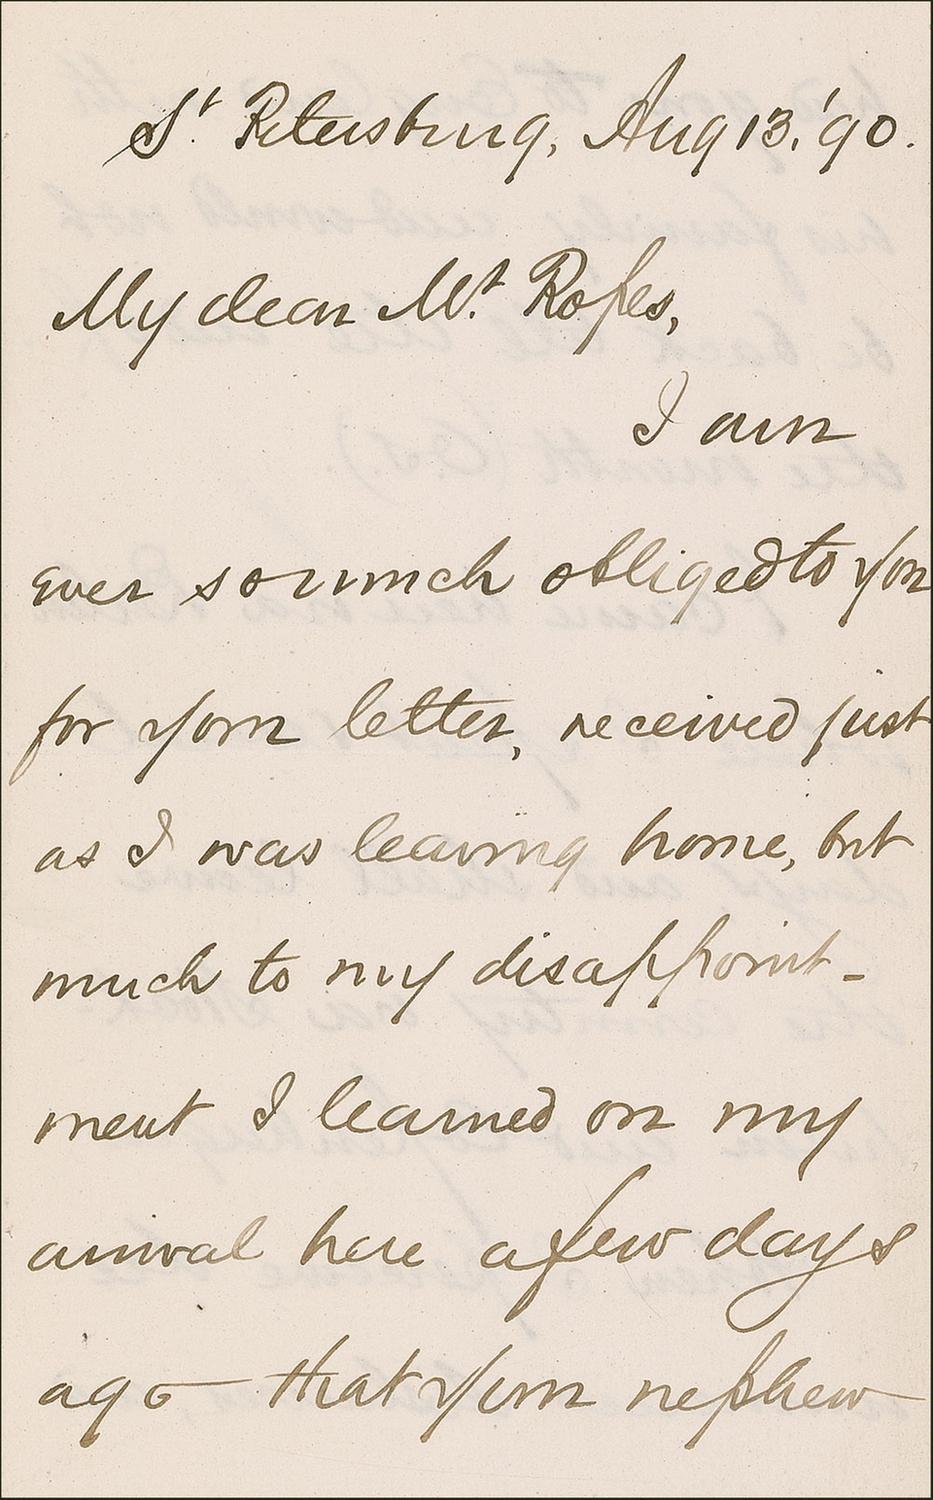 St. Petersburg, Aug 13, '90.
My dear Mr. Ropes,
I am
ever so much obliged to you
for your letter, received just
as I was leaving home, but
much to my disappoint-
ment I learned on my
arrival here a few days
ago - that your nephew